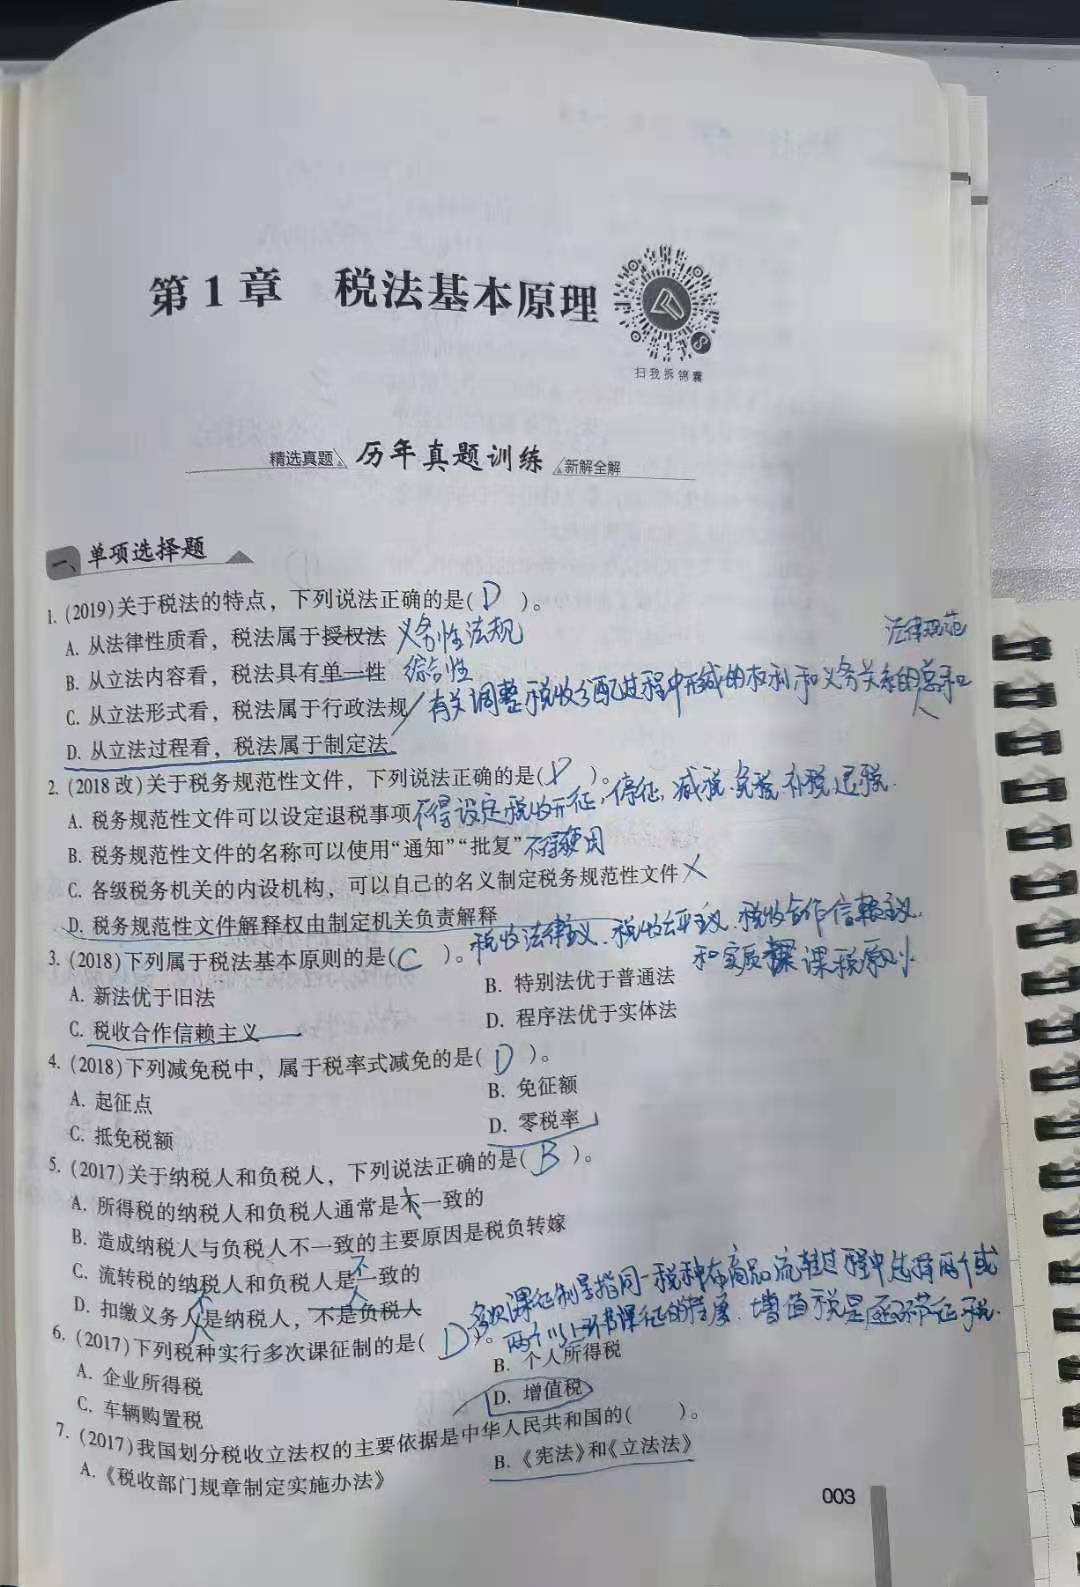 第1章 税法基本原理
扫我拆锦囊
精选真题 历年真题训练 新解全解
一、单项选择题
1. (2019)关于税法的特点，下列说法正确的是( D )。
A. 从法律性质看，税法属于授权法 义务性法规
法律规范
B. 从立法内容看，税法具有单一性 综合性
C. 从立法形式看，税法属于行政法规 有关调整税收分配过程中形成的权利和义务关系的总和
D. 从立法过程看，税法属于制定法
2. (2018改)关于税务规范性文件，下列说法正确的是( D )。
A. 税务规范性文件可以设定退税事项 不得设定税收开征，停征、减税、免税、补税、退税.
B. 税务规范性文件的名称可以使用“通知”“批复” 不得使用
C. 各级税务机关的内设机构，可以自己的名义制定税务规范性文件 ×
D. 税务规范性文件解释权由制定机关负责解释
3. (2018)下列属于税法基本原则的是( C )。税收法律主义、税收公平主义、税收合作信赖主义
和实质课税原则
A. 新法优于旧法 B. 特别法优于普通法
C. 税收合作信赖主义 D. 程序法优于实体法
4. (2018)下列减免税中，属于税率式减免的是( D )。
A. 起征点 B. 免征额
C. 抵免税额 D. 零税率
5. (2017)关于纳税人和负税人，下列说法正确的是( B )。
A. 所得税的纳税人和负税人通常是不一致的
B. 造成纳税人与负税人不一致的主要原因是税负转嫁
C. 流转税的纳税人和负税人是不一致的
D. 扣缴义务人不是纳税人，不是负税人
多次课征制是指同一税种在商品流转过程中选择两个或
6. (2017)下列税种实行多次课征制的是( D )。两个以上环节课征的程度. 增值税是逐环节征税.
A. 企业所得税 B. 个人所得税
C. 车辆购置税 D. 增值税
7. (2017)我国划分税收立法权的主要依据是中华人民共和国的( )。
A.《税收部门规章制定实施办法》 B.《宪法》和《立法法》
003